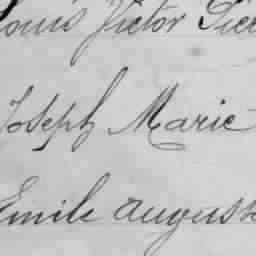 Louis Victor Pier
Joseph Marie
Emile august